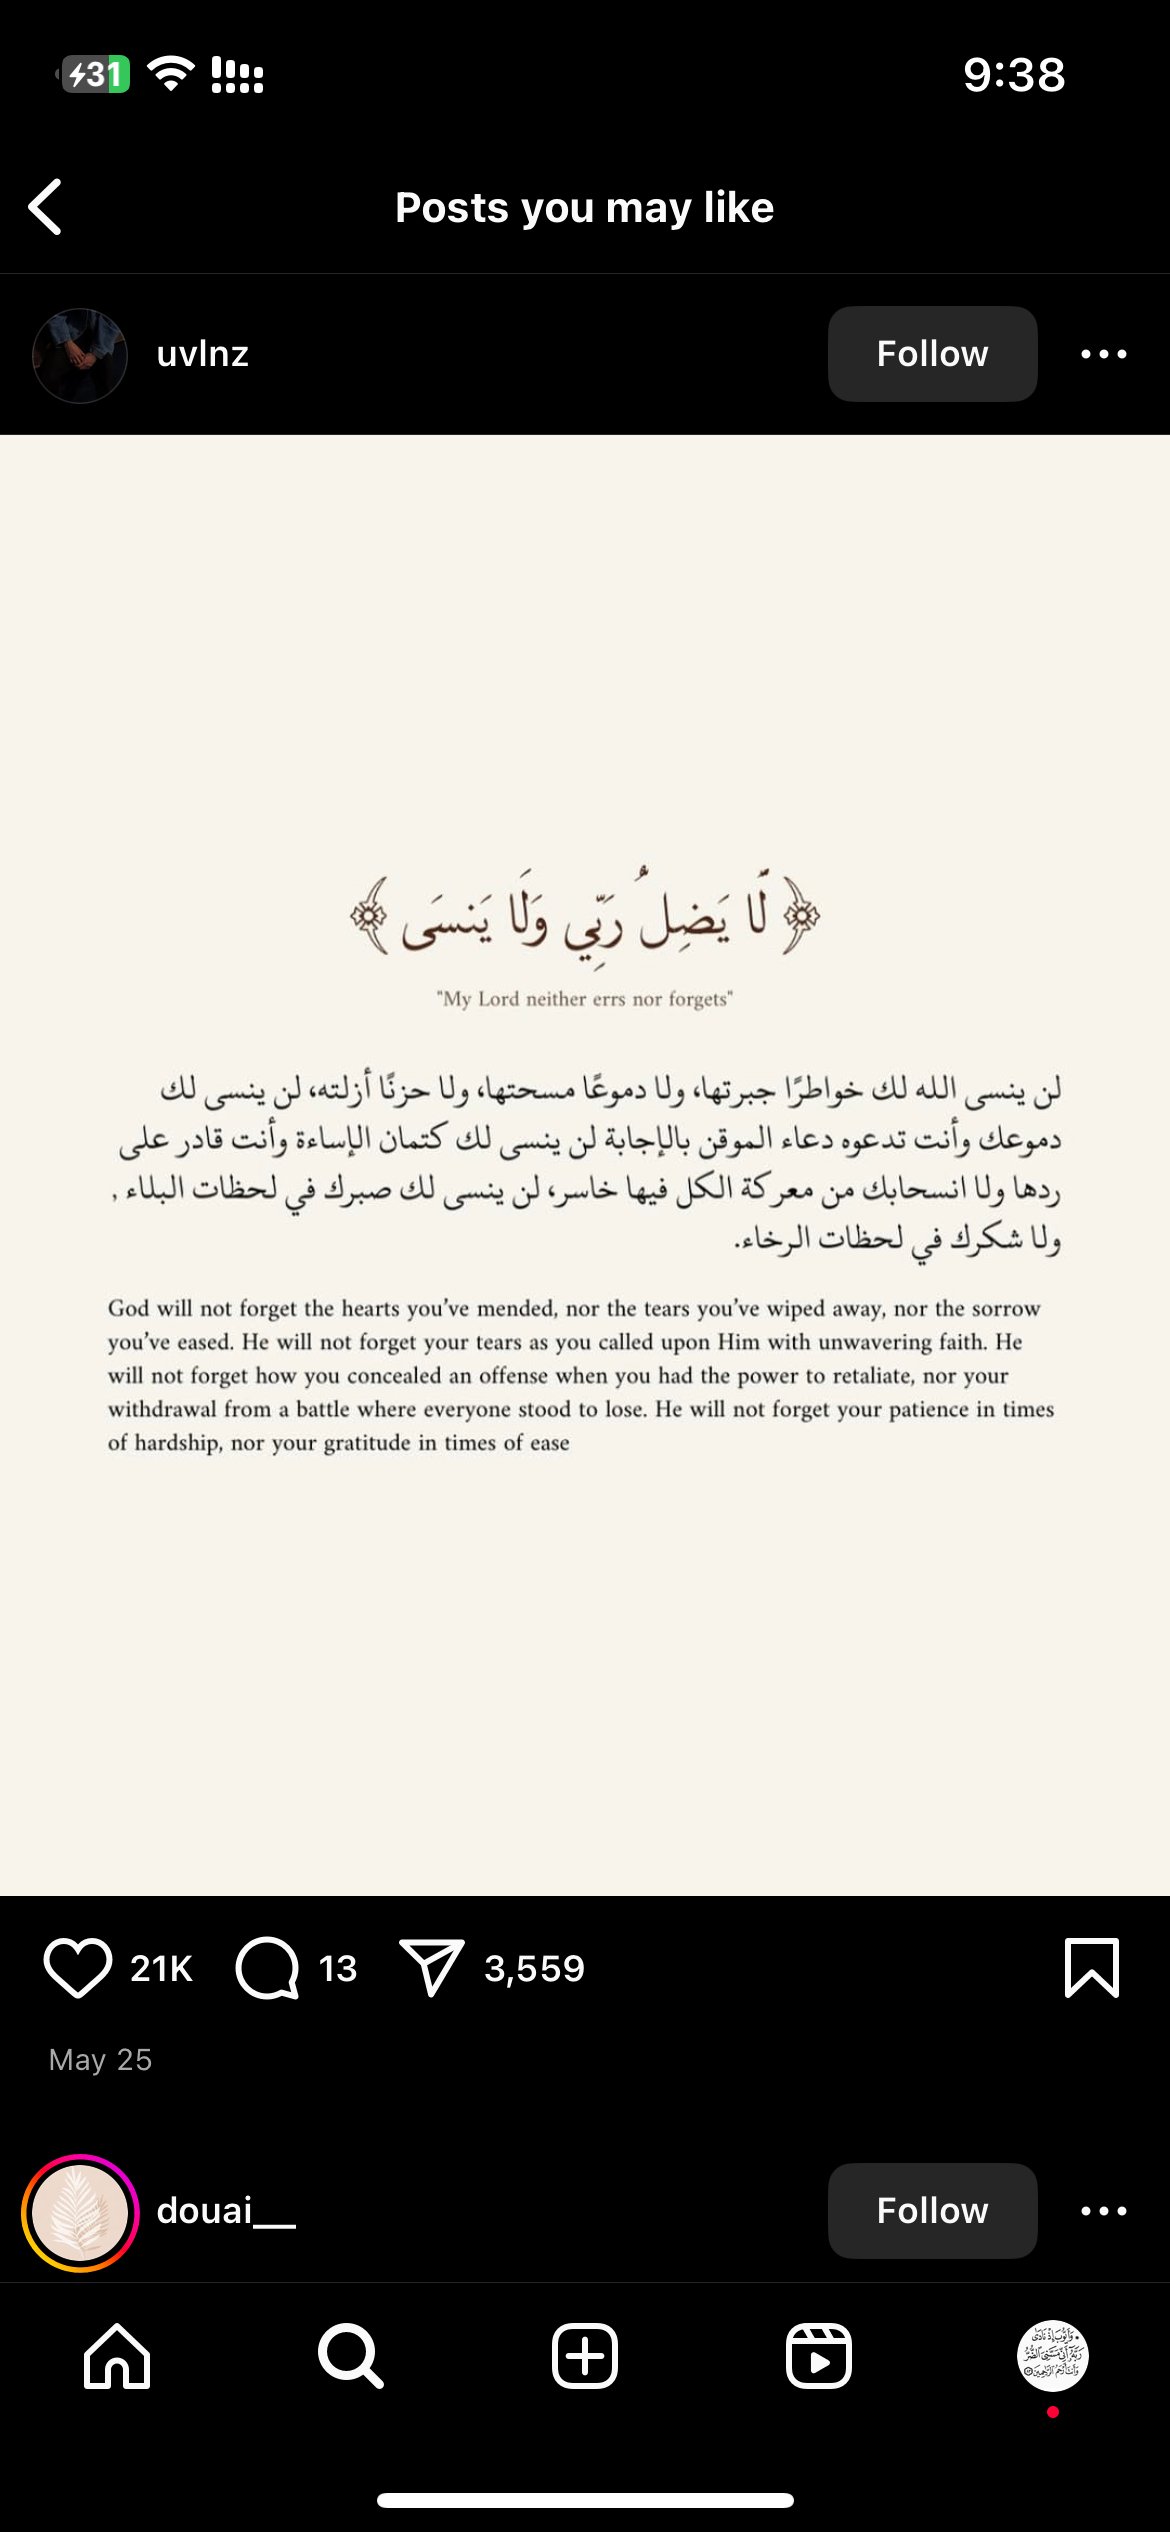 31
9:38
Posts you may like
uvlnz
Follow
﴿ لَّا يَضِلُ رَبِّي وَلَا يَنسَى ﴾
"My Lord neither errs nor forgets"
لن ينسى الله لك خواطرًا جبرتها، ولا دموعًا مسحتها، ولا حزنًا أزلته، لن ينسى لك
دموعك وأنت تدعوه دعاء الموقن بالإجابة لن ينسى لك كتمان الإساءة وأنت قادر على
ردها ولا انسحابك من معركة الكل فيها خاسر، لن ينسى لك صبرك في لحظات البلاء ,
ولا شكرك في لحظات الرخاء.
God will not forget the hearts you’ve mended, nor the tears you’ve wiped away, nor the sorrow
you’ve eased. He will not forget your tears as you called upon Him with unwavering faith. He
will not forget how you concealed an offense when you had the power to retaliate, nor your
withdrawal from a battle where everyone stood to lose. He will not forget your patience in times
of hardship, nor your gratitude in times of ease
21K 13 3,559
May 25
douai__
Follow